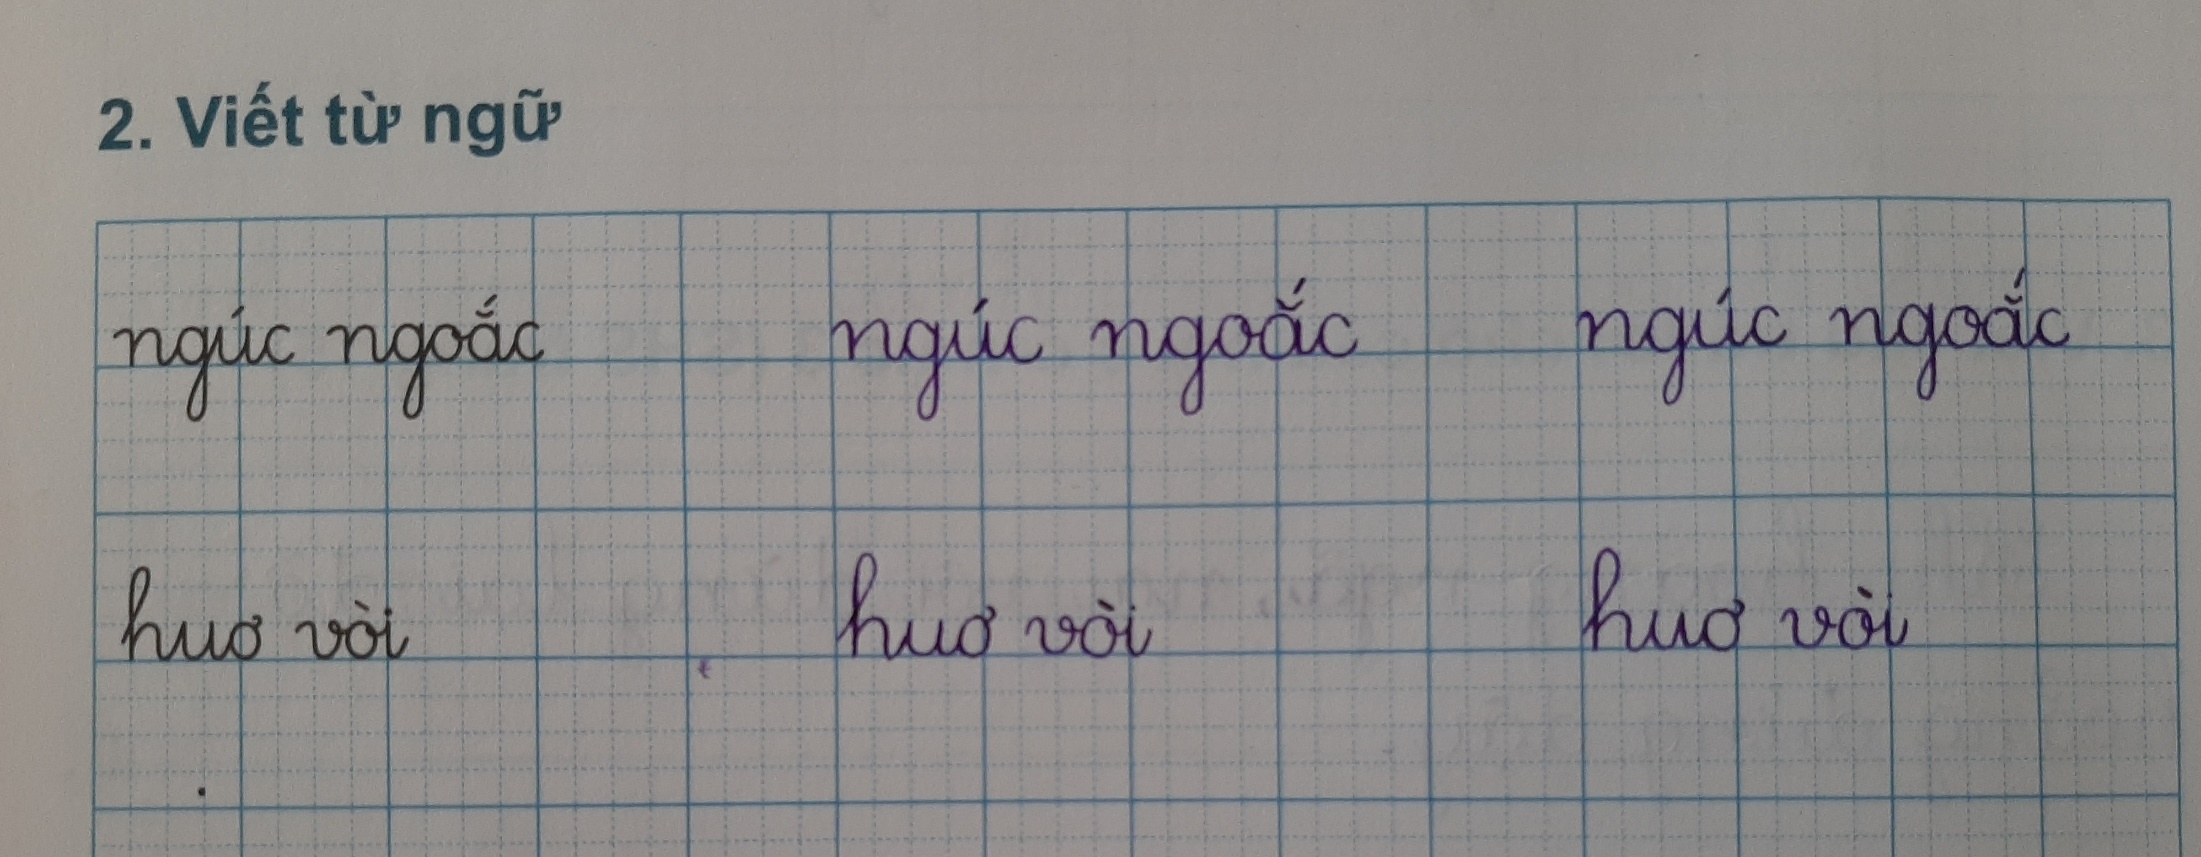 2. Viết từ ngữ
ngúc ngoắc ngúc ngoắc ngúc ngoắc
huơ vòi huơ vòi huơ vòi